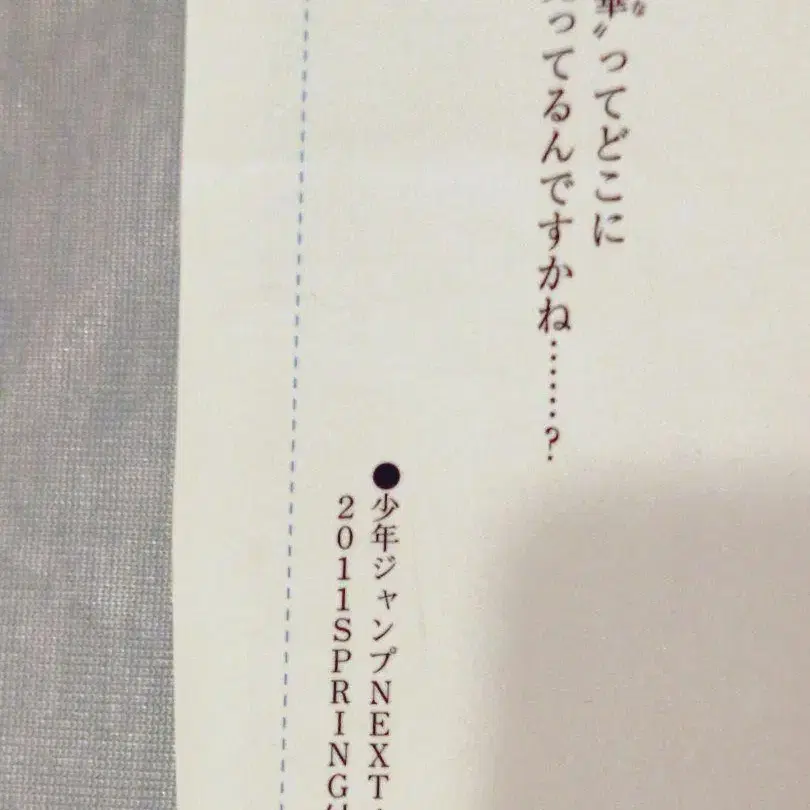 〟ってどこに
ってるんですかね……?
●少年ジャンプNEXT
2011SPRING